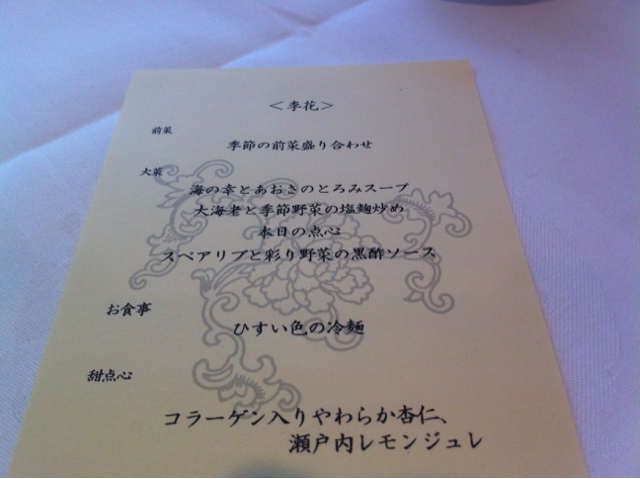 ＜李花＞
前菜
季節の前菜盛り合わせ
大菜
海の幸とあおさのとろみスープ
大海老と季節野菜の塩麹炒め
本日の点心
スペアリブと彩り野菜の黒酢ソース
お食事
ひすい色の冷麺
甜点心
コラーゲン入りやわらか杏仁、
瀬戸内レモンジュレ